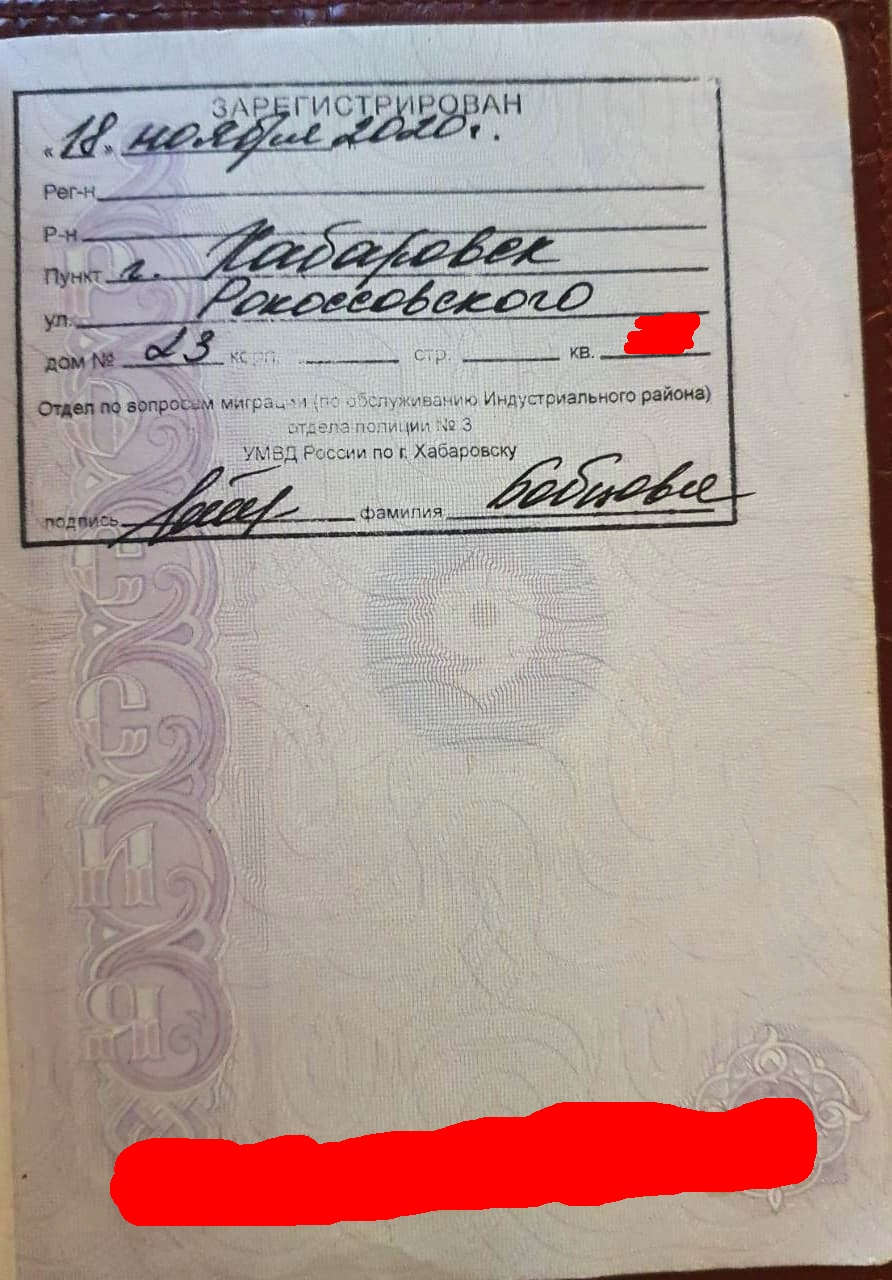 ЗАРЕГИСТРИРОВАН
« 18 » ноября 2020 г.
Рег-н
Р-н
Пункт г. Хабаровск
ул. Рокоссовского
дом № 23 корп. стр. кв.
Отдел по вопросам миграции (по обслуживанию Индустриального района)
отдела полиции № 3
УМВД России по г. Хабаровску
подпись фамилия